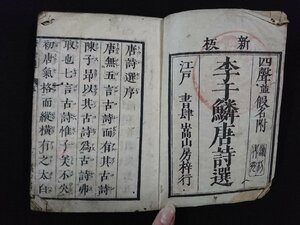 新板
四聲並假名附
李于鱗唐詩選
江戸 書肆嵩山房梓行
唐詩選序
唐無五言古詩而有其古詩
陳子昂以其古詩為古詩弗
取也七言古詩惟子美不失
初唐氣格而縱橫有之太白